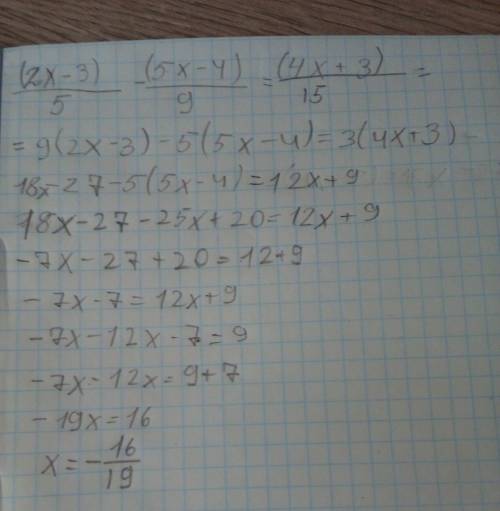 (2x-3)/5 - (5x-4)/9 = (4x+3)/15 =
= 9(2x-3)-5(5x-4)=3(4x+3)
18x-27-5(5x-4)=12x+9
18x-27-25x+20=12x+9
-7x-27+20=12+9
-7x-7=12x+9
-7x-12x-7=9
-7x-12x=9+7
-19x=16
x=-16/19